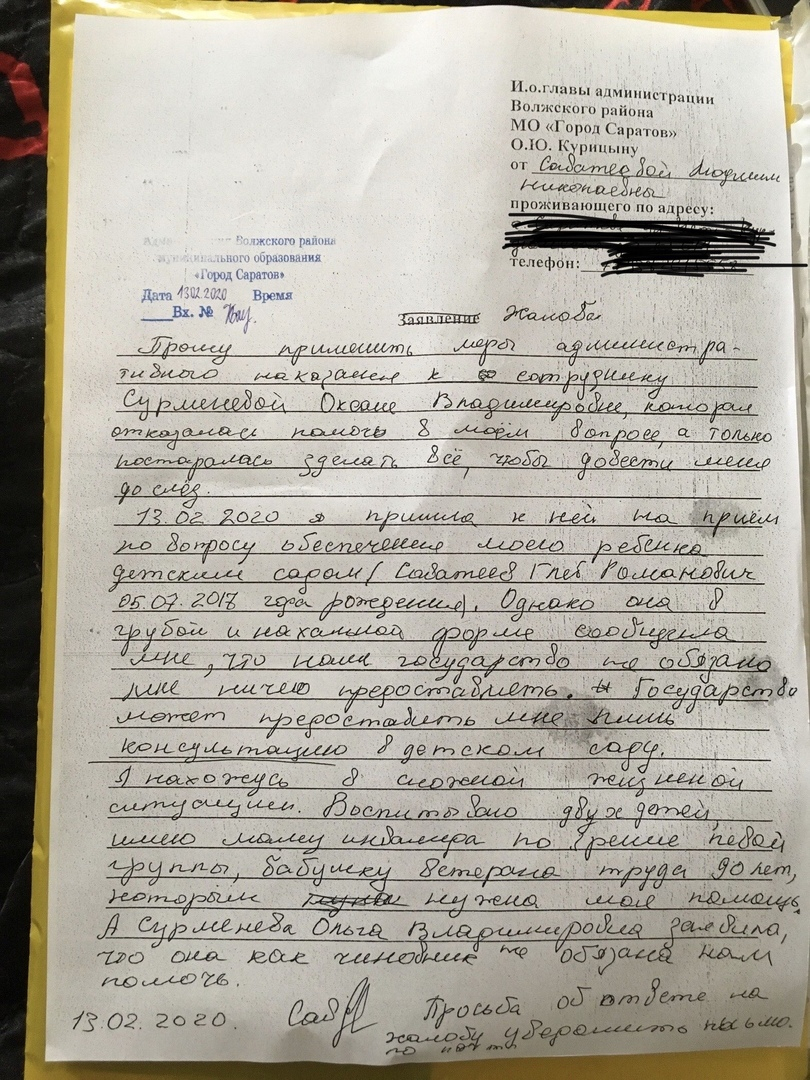 И.о.главы администрации
Волжского района
МО «Город Саратов»
О.Ю. Курицыну
от Саватеевой Людмилы
николаевны
проживающего по адресу:
телефон:
Волжского района
муниципального образования
«Город Саратов»
Дата 13.02.2020 Время
Вх. №
Заявление Жалоба
Прошу применить меры администра-
тивного наказания к сотруднику
Сурменевой Оксане Владимировне, которая
отказалась помочь в моём вопросе, а только
постаралась зделать всё, чтобы довести меня
до слёз.
13.02 2020 я пришла к ней на приём
по вопросу обеспечения моего ребёнка
детским садом (Саватеев Глеб Романович
05.07.2017 года рождения). Однако она в
грубой и нахальной форме сообщила
мне, что наше государство не обязано
мне ничего предоставлять. Государство
может предоставить мне лишь
консультацию в детском саду.
Я нахожусь в сложной жизненой
ситуации. Воспитываю двух детей,
имею маму инвалида по зрению первой
группы, бабушку ветерана труда 90 лет,
которым нужна моя помощь.
А Сурменева Ольга Владимировна заявила,
что она как чиновник не обязана нам
помочь.
13.02.2020. Просьба об ответе на
жалобу уведомить письмо.
по почте